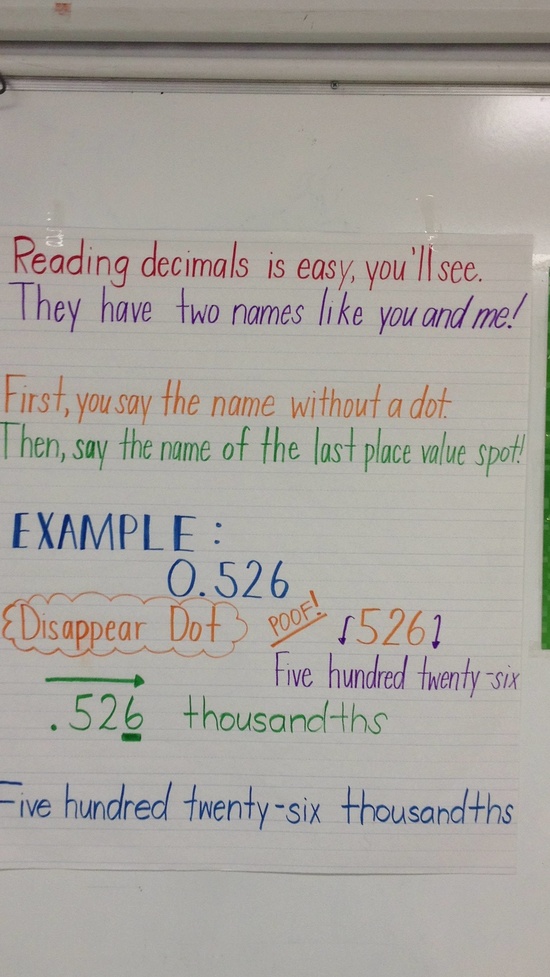 Reading decimals is easy, you'll see.
They have two names like you and me!
First, you say the name without a dot.
Then, say the name of the last place value spot!
EXAMPLE:
0.526
Disappear Dot POOF! 526
Five hundred twenty-six
.526 thousandths
Five hundred twenty-six thousandths